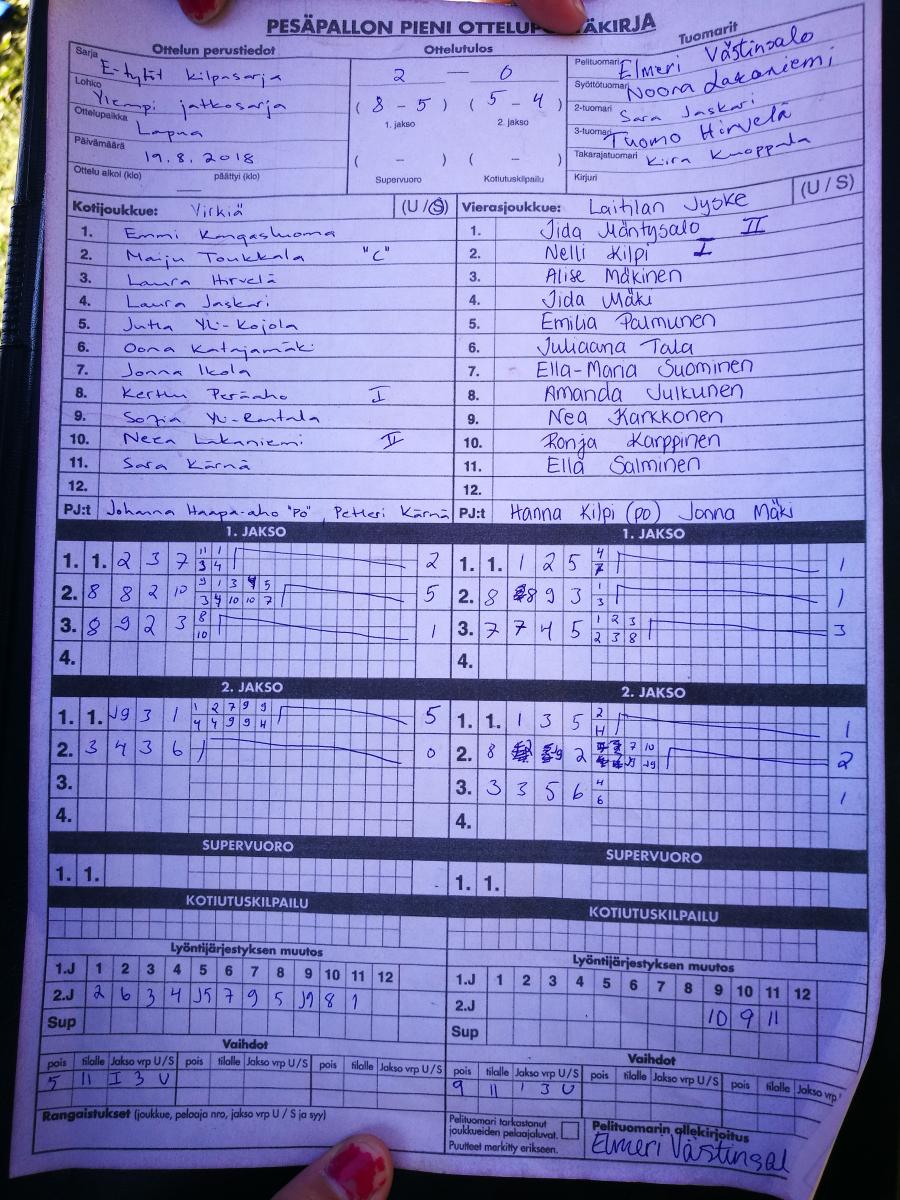 PESÄPALLON PIENI OTTELUPÖYTÄKIRJA
Ottelun perustiedot
Sarja E-tytöt kilpasarja
Lohko Ylempi jatkosarja
Ottelupaikka Lapua
Päivämäärä 19.8.2018
Ottelu alkoi (klo) päättyi (klo)
Ottelutulos
2 — 0
( 8 - 5 ) ( 5 - 4 )
1. jakso 2. jakso
( - ) ( - )
Supervuoro Kotiutuskilpailu
Tuomarit
Pelituomari Elmeri Västinsalo
Syöttötuomari Noora Lakaniemi
2-tuomari Sara Jaskari
3-tuomari Tuomo Hirvelä
Takarajatuomari Kiira Knoppala
Kirjuri
Kotijoukkue: Virkiä (U / S)
1. Emmi Kangasluoma
2. Maiju Toukkala "C"
3. Laura Hirvelä
4. Laura Jaskari
5. Jutta Yli-Kojola
6. Oona Katajamäki
7. Jonna Ikola
8. Kerttu Peräaho I
9. Sofia Yli-Rantala
10. Neea Lakaniemi II
11. Sara Kärnä
12.
PJ:t Johanna Haapa-aho "PO", Petteri Kärnä
Vierasjoukkue: Laitilan Jyske (U / S)
1. Iida Mäntysalo II
2. Nelli Kilpi I
3. Alise Mäkinen
4. Iida Mäki
5. Emilia Palmunen
6. Juliaana Tala
7. Ella-Maria Suominen
8. Amanda Julkunen
9. Nea Karkkonen
10. Ronja Karppinen
11. Ella Salminen
12.
PJ:t Hanna Kilpi (po) Jonna Mäki
1. JAKSO
1. 1. 2 3 7 11 1 2
3 4
2. 8 8 2 10 9 1 3 4 5 5
3 4 10 10 7
3. 8 9 2 3 8 1
10
4.
1. JAKSO
1. 1. 1 2 5 4 1
7
2. 8 8 9 3 1 1
3
3. 7 7 4 5 1 2 3 3
2 3 8
4.
2. JAKSO
1. 1. J9 3 1 1 2 7 9 9 5
4 4 9 9 4
2. 3 4 3 6 0
3.
4.
2. JAKSO
1. 1. 1 3 5 2 1
2. 8 2 7 10 2
3. 3 3 5 6 4 1
6
4.
SUPERVUORO
1. 1.
SUPERVUORO
1. 1.
KOTIUTUSKILPAILU
KOTIUTUSKILPAILU
Lyöntijärjestyksen muutos
1.J 1 2 3 4 5 6 7 8 9 10 11 12
2.J 2 6 3 4 J5 7 9 5 J9 8 1
Sup
Lyöntijärjestyksen muutos
1.J 1 2 3 4 5 6 7 8 9 10 11 12
2.J 10 9 11
Sup
Vaihdot
pois tilalle Jakso vrp U/S pois tilalle Jakso vrp U/S pois tilalle Jakso vrp U/S
5 11 I 3 U
Vaihdot
pois tilalle Jakso vrp U/S pois tilalle Jakso vrp U/S pois tilalle Jakso vrp
9 11 1 3 U
Rangaistukset (joukkue, pelaaja nro, jakso vrp U / S ja syy)
Pelituomari tarkastanut
joukkueiden pelaajaluvat.
Puutteet merkitty erikseen.
Pelituomarin allekirjoitus
Elmeri Västinsal